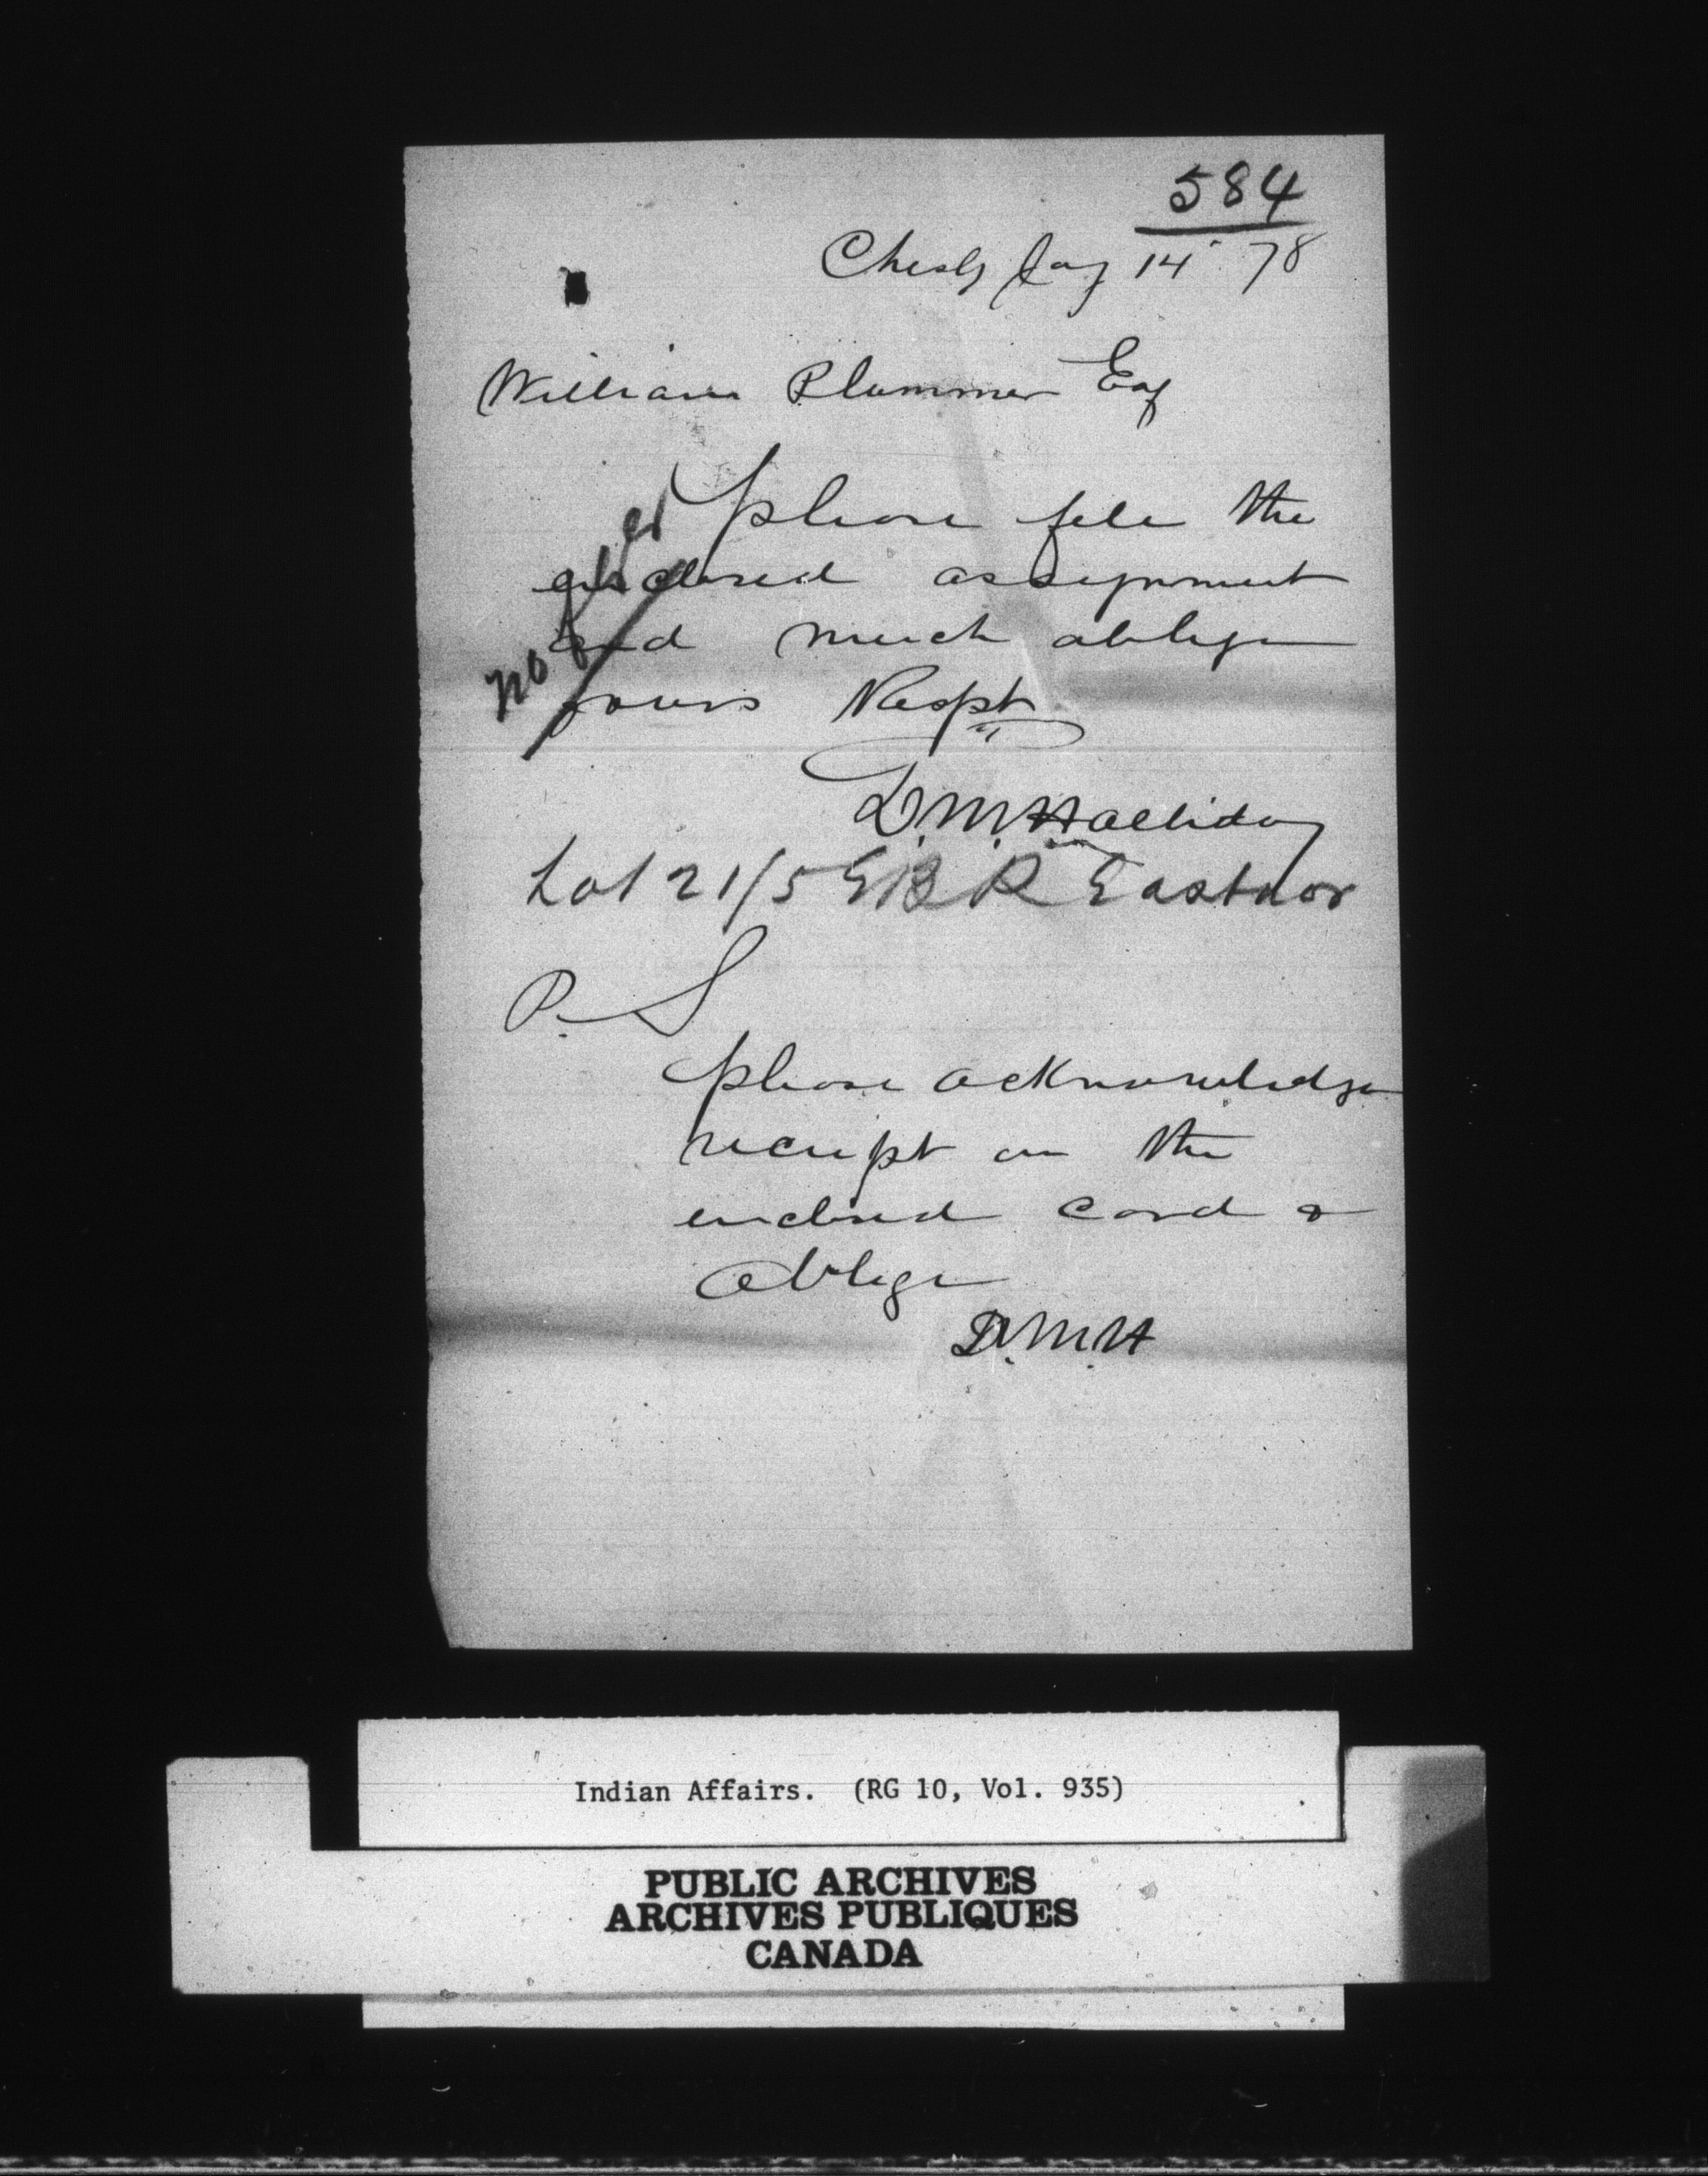 584
Chesly Jany 14 . 78
William Plummer Esq
please file the
enclosed assignment
and much oblige
yours Respt
D. M. Halliday
Lot 21/5 E B R Eastnor
P. S
please acknowledge
receipt on the
enclosed card &
oblige
D. M. H
Indian Affairs. (RG 10, Vol. 935)
PUBLIC ARCHIVES
ARCHIVES PUBLIQUES
CANADA